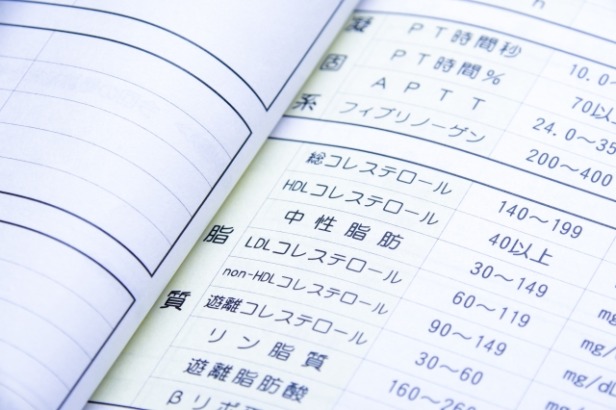 凝固系
PT時間秒 10.0~
PT時間% 70以
APTT 24.0~35
フィブリノーゲン 200~400
脂質
総コレステロール 140~199
HDLコレステロール 40以上
中性脂肪 30~149 mg
LDLコレステロール 60~119 mg/
non-HDLコレステロール 90~149 mg/d
遊離コレステロール 30~60 mg/d
リン脂質 160~260
遊離脂肪酸
βリポ